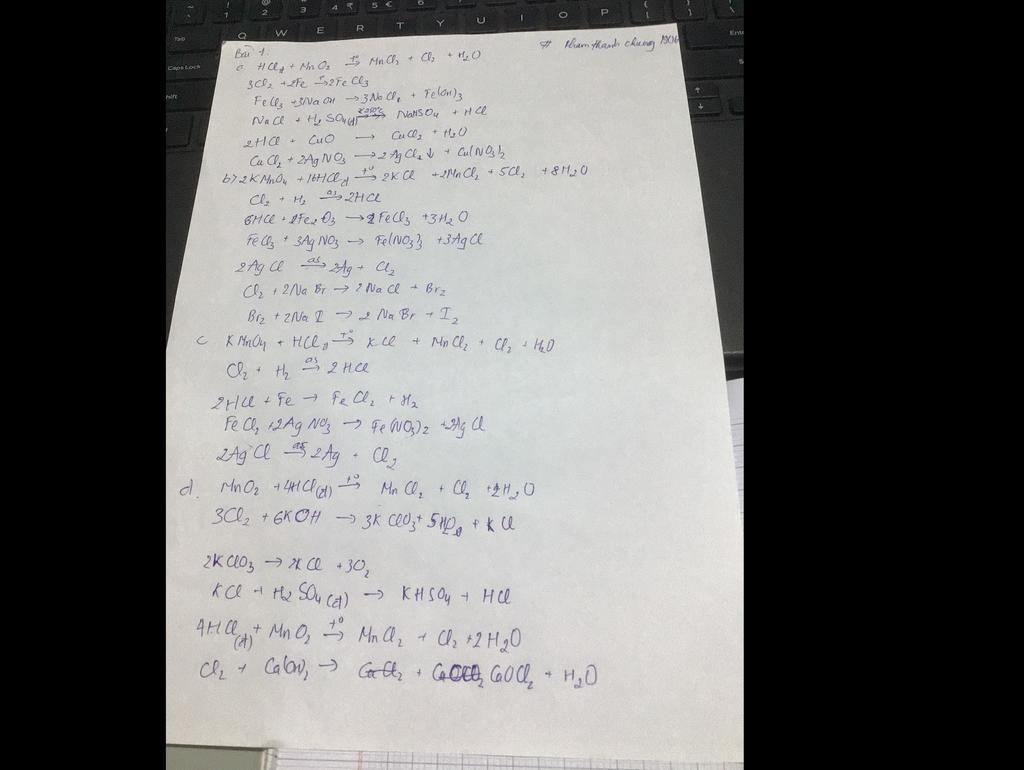 # Phamthanh chuong 1906
Bài 1:
a. HCl đ + MnO2 →t° MnCl2 + Cl2 + H2O
3Cl2 + 2Fe →t° 2FeCl3
FeCl3 + 3NaOH → 3NaCl + Fe(OH)3
NaCl + H2SO4(đ) → NaHSO4 + HCl
2HCl + CuO → CuCl2 + H2O
CuCl2 + 2AgNO3 → 2AgCl ↓ + Cu(NO3)2
b> 2KMnO4 + 16HCl đ →t° 2KCl + 2MnCl2 + 5Cl2 + 8H2O
Cl2 + H2 →as 2HCl
6HCl + Fe2O3 → 2FeCl3 + 3H2O
FeCl3 + 3AgNO3 → Fe(NO3)3 + 3AgCl
2AgCl →as 2Ag + Cl2
Cl2 + 2NaBr → 2NaCl + Br2
Br2 + 2NaI → 2NaBr + I2
c KMnO4 + HCl đ →t° KCl + MnCl2 + Cl2 + H2O
Cl2 + H2 →as 2HCl
2HCl + Fe → FeCl2 + H2
FeCl2 + 2AgNO3 → Fe(NO3)2 + 2AgCl
2AgCl →as 2Ag + Cl2
d. MnO2 + 4HCl(đ) →t° MnCl2 + Cl2 + 2H2O
3Cl2 + 6KOH → 3KClO3 + 5H2O + KCl
2KClO3 → 2KCl + 3O2
KCl + H2SO4(đ) → KHSO4 + HCl
4HCl(đ) + MnO2 →t° MnCl2 + Cl2 + 2H2O
Cl2 + Ca(OH)2 → CaCl2 + CaOCl2 + H2O
Tab
Caps Lock
Q W E R T Y U I O P
Ente